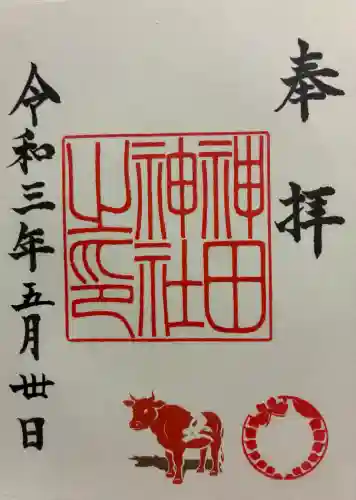 奉拝
神田神社之印
令和三年五月丗日